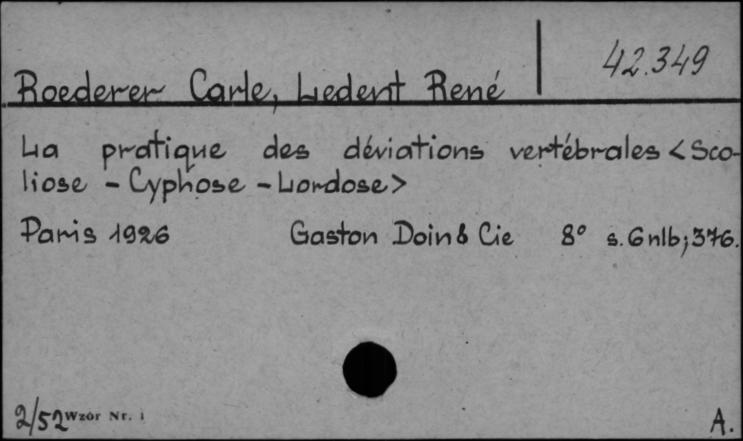 42.349
Roederer Carle, Ledent René
La pratique des déviations vertébrales <Sco-
liose - Cyphose - Lordose>
Paris 1926 Gaston Doin & Cie 8° s. 6 nlb; 376.
2/52 Wzór Nr. 1 A.